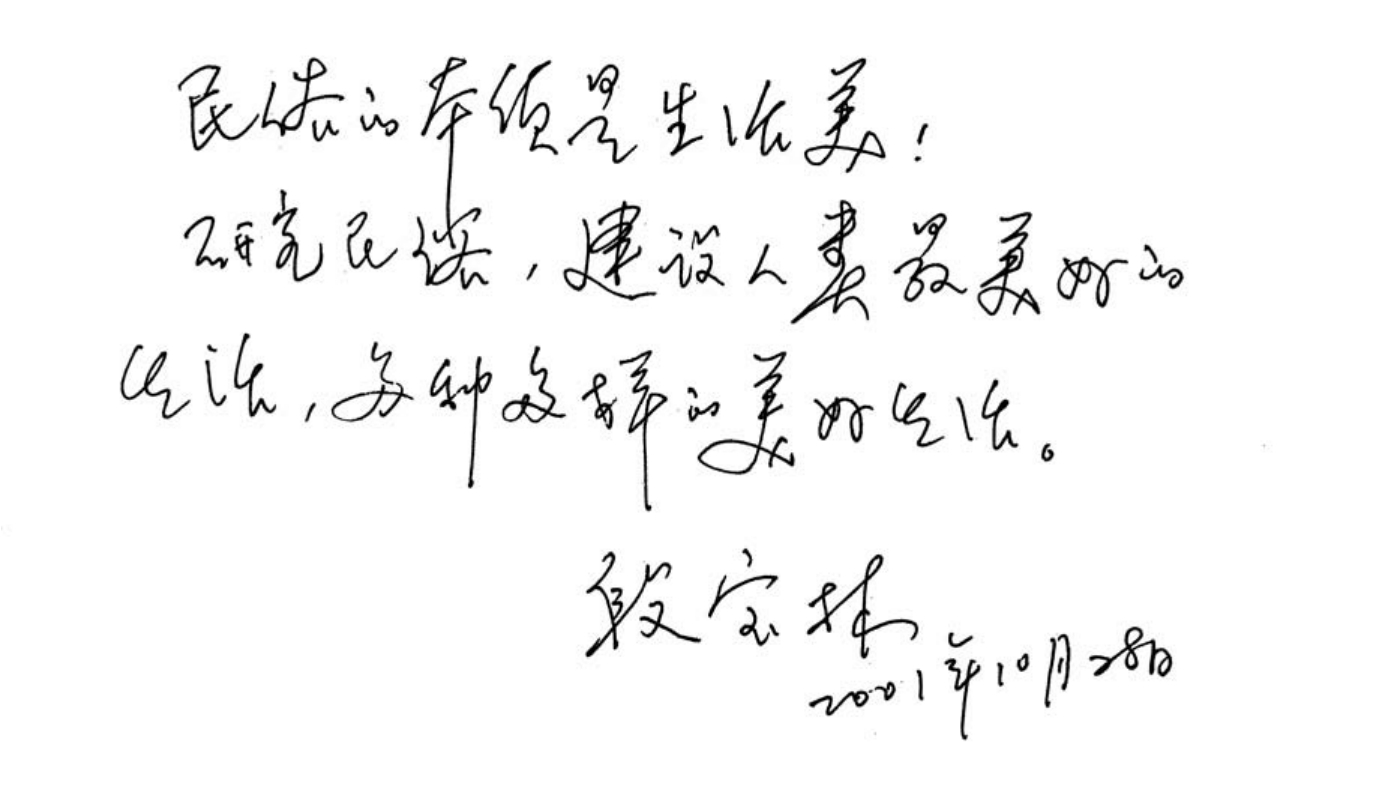 民俗的本质是生活美！
研究民俗，建设人类最美好的
生活，多种多样的美好生活。
段宝林
2001年10月28日